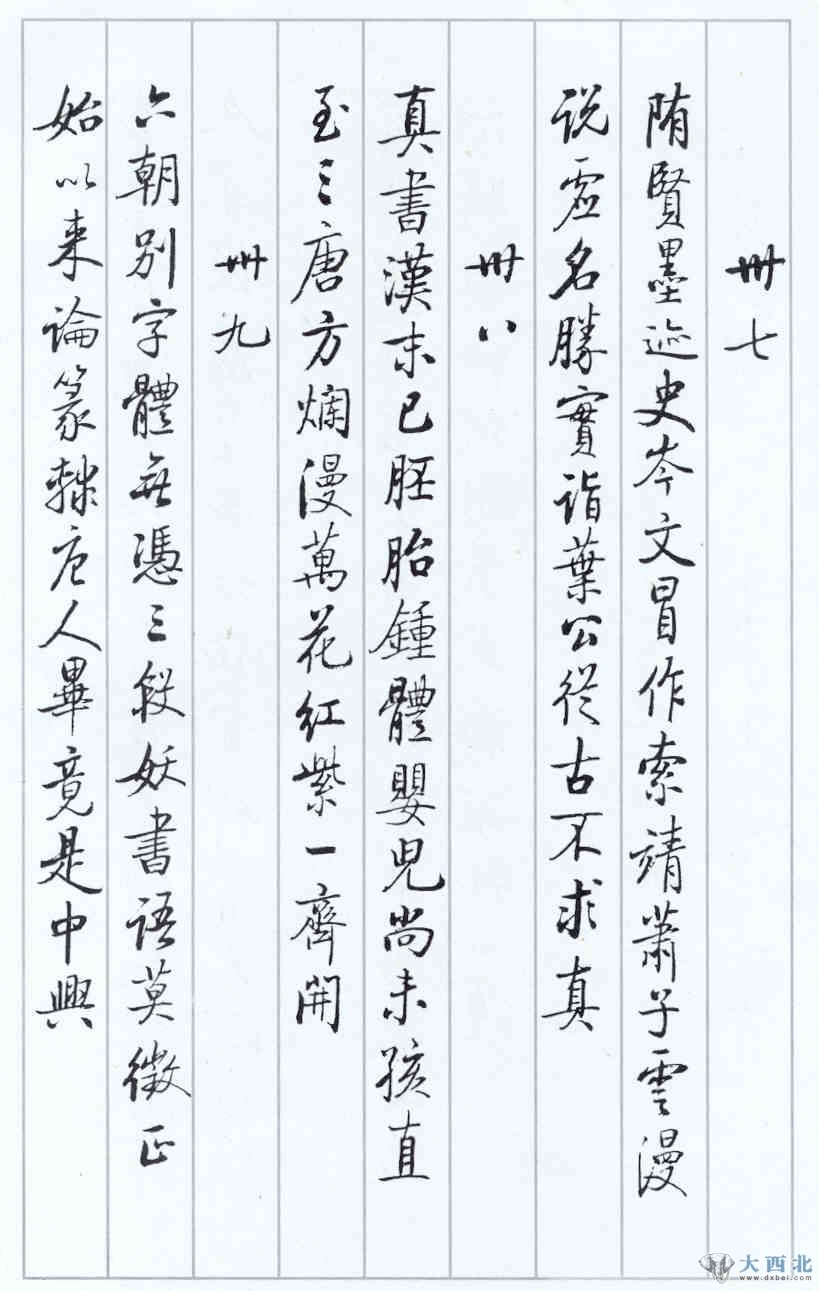 卌七
隋賢墨迹史岑文冒作索靖蕭子雲漫
说虚名勝實詣葉公從古不求真
卌八
真書漢末已胚胎鍾體嬰兒尚未孩直
至三唐方爛漫萬花紅紫一齊開
卌九
六朝别字體無憑三段妖書語莫徵正
始以来論篆隸唐人畢竟是中興
大西北
www.dxbei.com